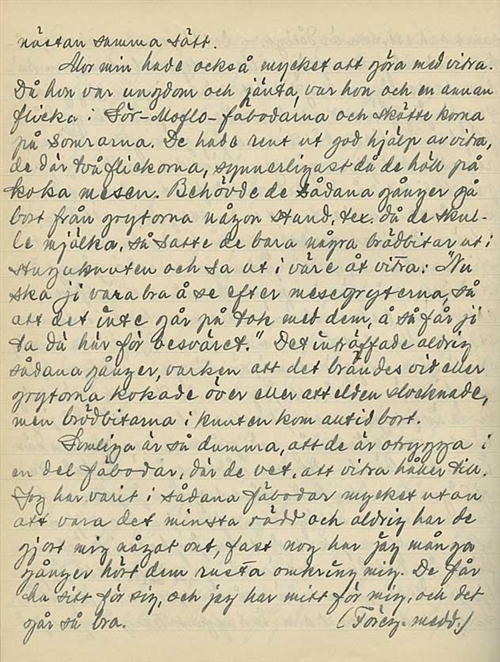 nästan samma sätt.
Mor min hade också mycket att göra med vitra.
Då hon var ungdom och jänta, var hon och en annan
flicka i Sör-Moflo-fäbodarna och skötte korna
på somrarna. De hade rent ut god hjälp av vitra,
de där två flickorna, synnerligast då de höll på
koka mesen. Behövde de sådana gånger gå
bort från grytorna någon stund, tex. då de skul-
le mjölka, så satte de bara några brödbitar ut i
stuguknuten och sa ut i väre åt vitra: "Nu
ska ji vara bra å se efter mesegryterna, så
att det inte går på tok med dem, å så får ji
ta dä här för besväret." Det inträffade aldrig
sådana gånger, varken att det brändes vid eller
grytorna kokade över eller att elden slocknade,
men brödbitarna i knuten kom alltid bort.
Somliga är så dumma, att de är otrygga i
en del fäbodar, där de vet, att vitra håller till.
Jag har varit i sådana fäbodar mycket utan
att vara det minsta rädd och aldrig har de
gjort mig något ont, fast nog har jag många
gånger hört dem rusta omkring mig. De får
ha sitt för sig, och jag har mitt för mig, och det
går så bra. (Föreg. medd.)